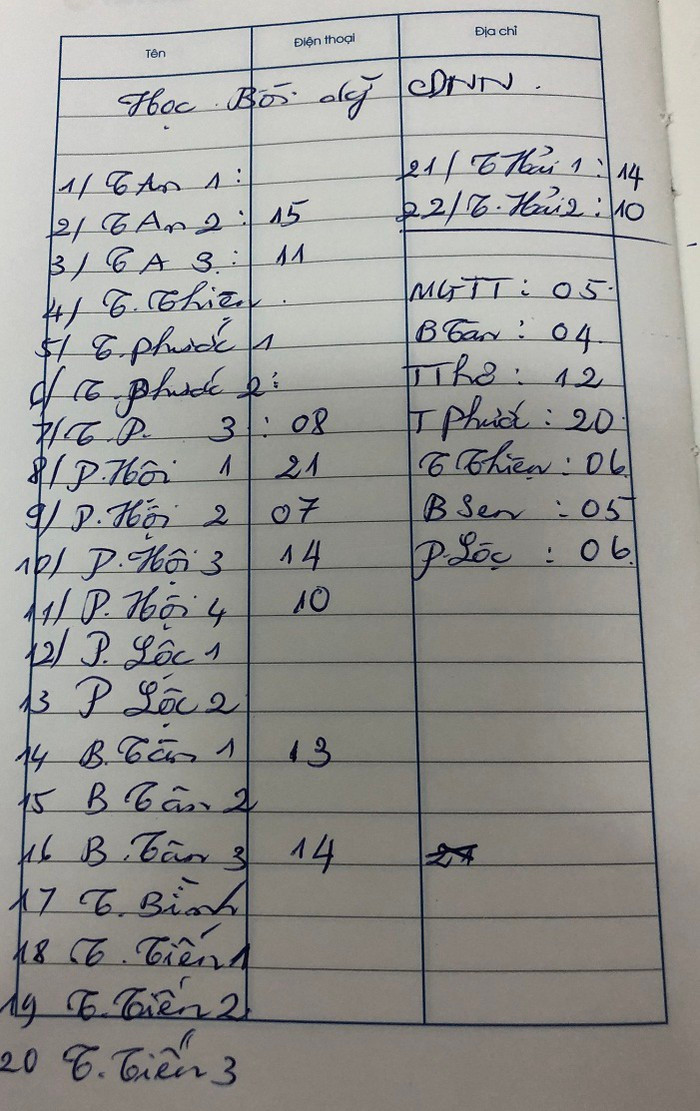 Tên Điện thoại Địa chỉ
Học Bồi dg CDNN.
1/ T An 1 :
2/ T An 2 : 15
3/ T A 3 : 11
4/ T. Thiện
5/ T. phước 1
6/ T. phước 2 :
7/ T. P. 3 : 08
8/ P. Hội 1 21
9/ P. Hội 2 07
10/ P. Hội 3 14
11/ P. Hội 4 10
12/ P. Lộc 1
13 P Lộc 2
14 B. Tân 1 13
15 B Tân 2
16 B. Tân 3 14
17 T. Bình
18 T. Tiến 1
19 T. Tiến 2
20 T. Tiến 3
21/ T Hải 1 : 14
22/ T. Hải 2 : 10
MGTT : 05
B Tân : 04
TThờ : 12
T Phước : 20
T Thiện : 06
B Sen : 05
P. Lộc : 06